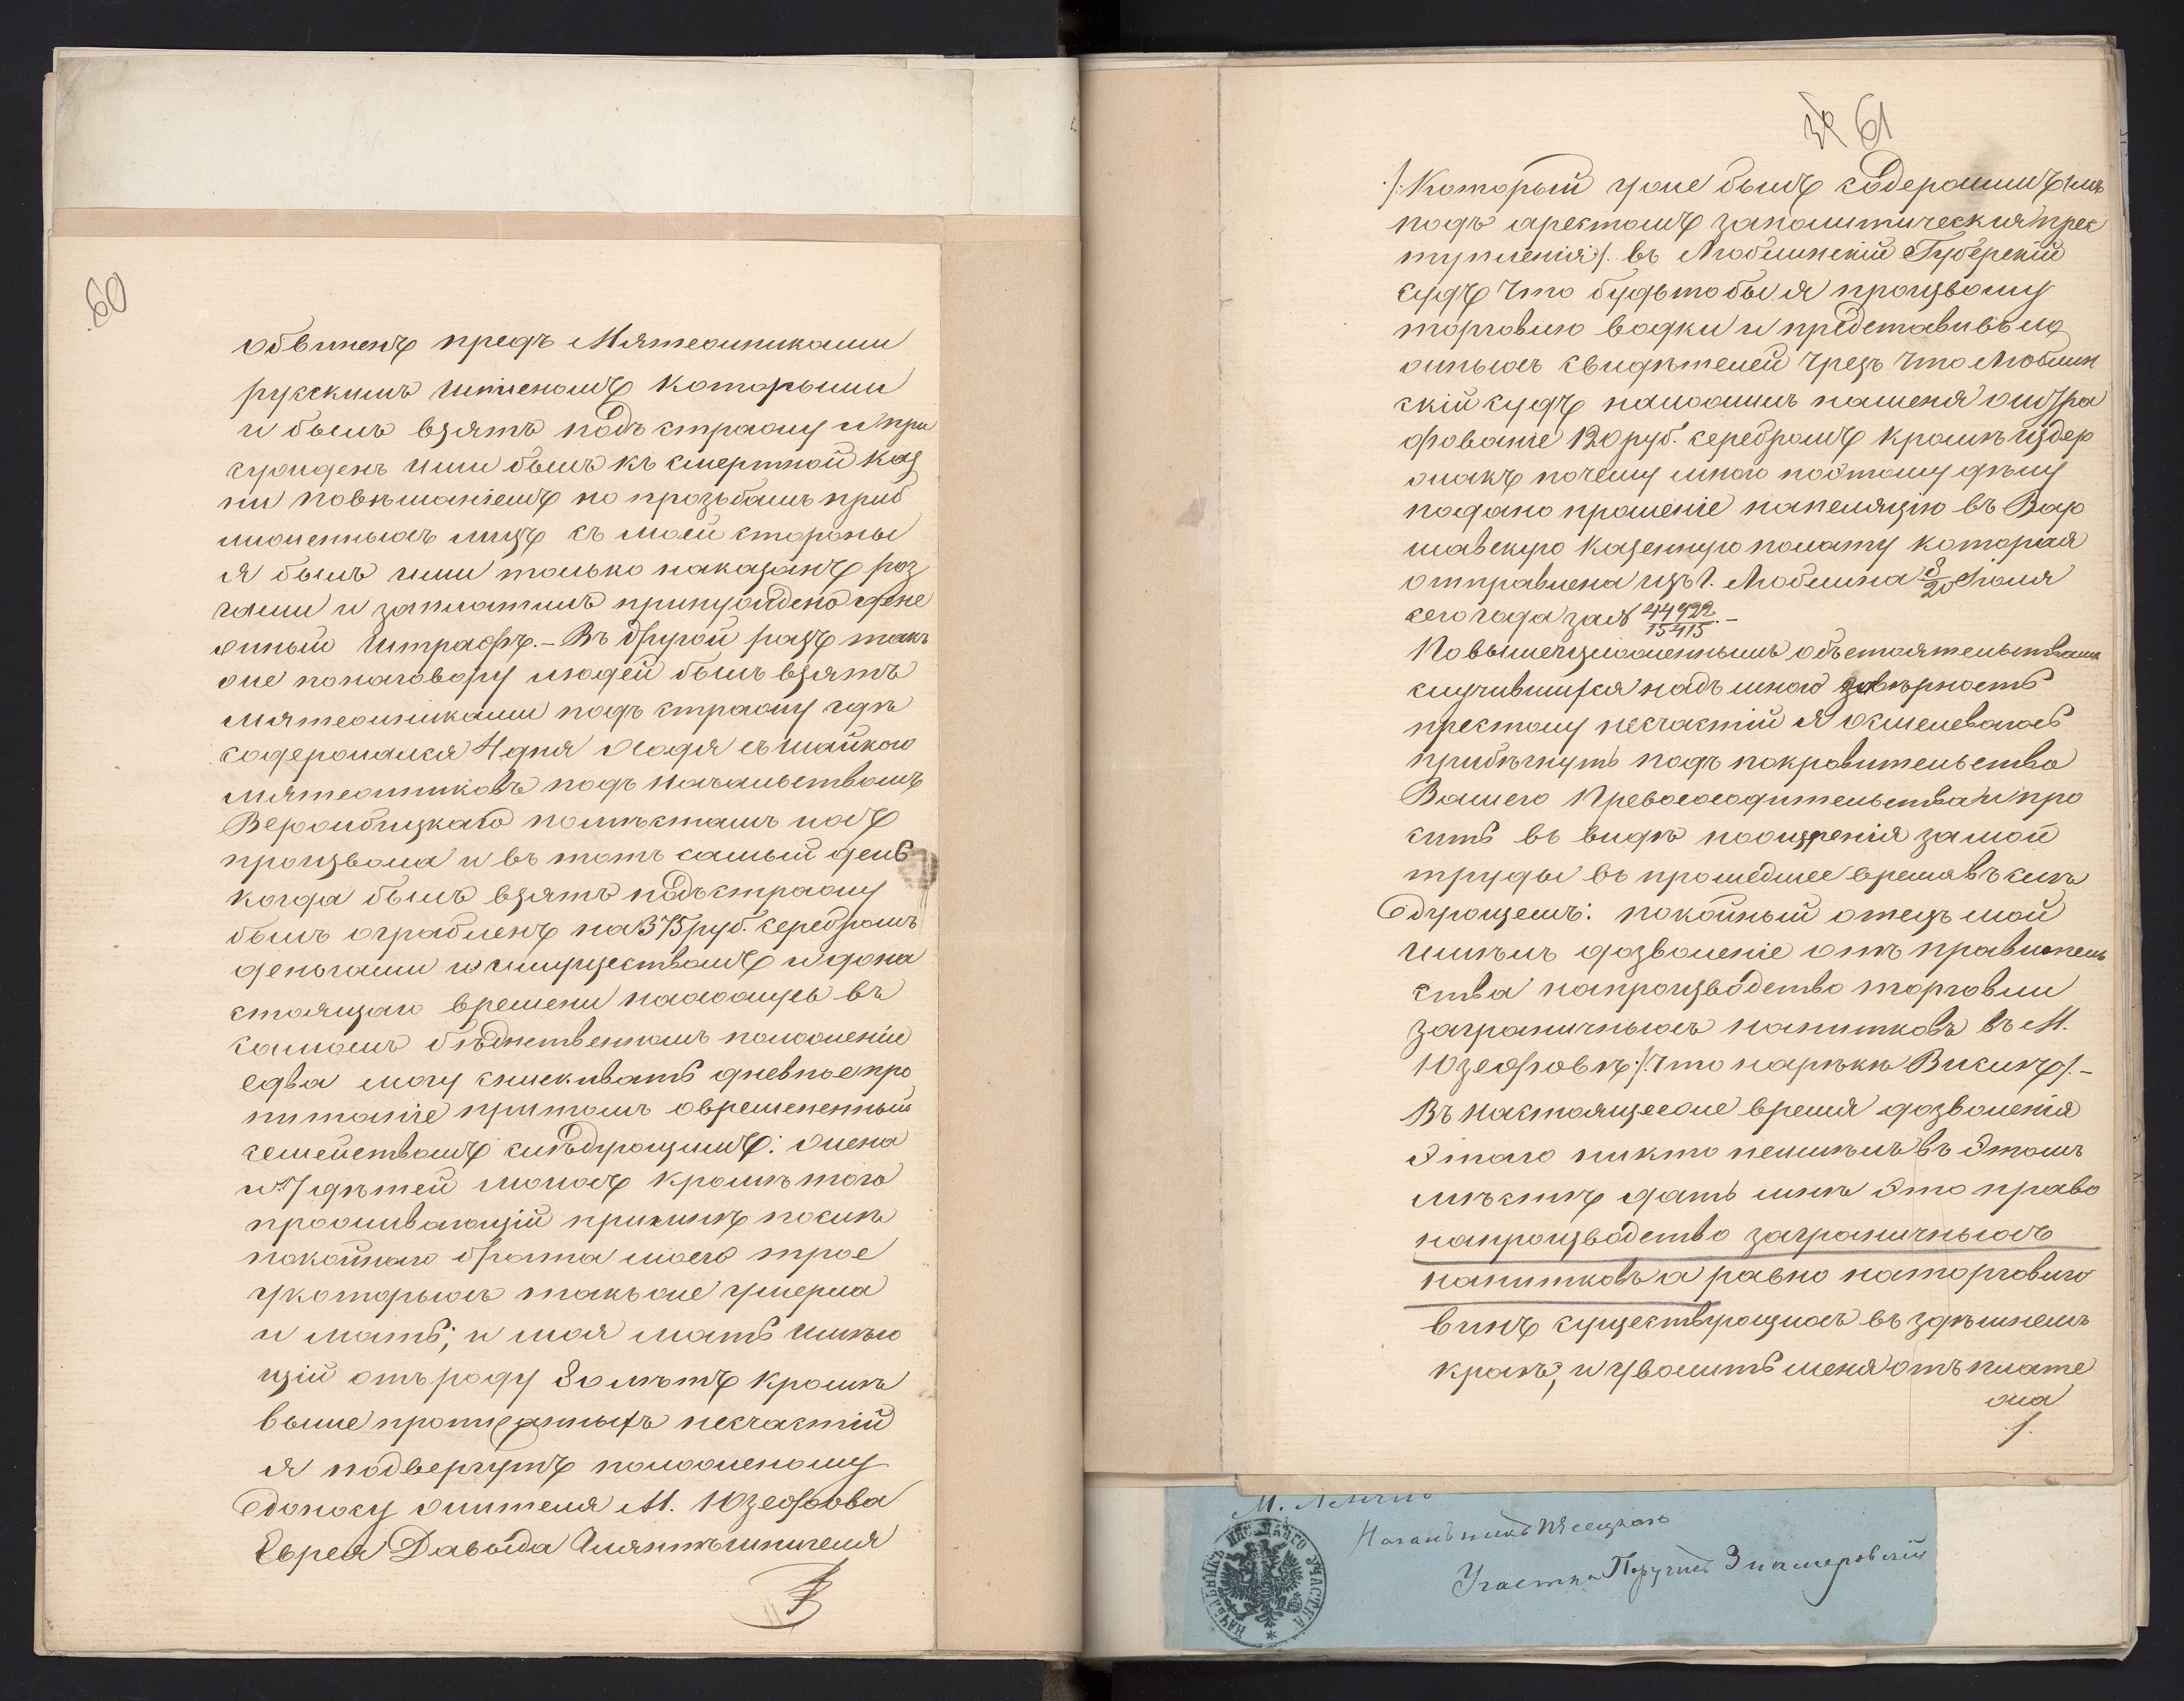 60
обвиненъ предъ Мятежниками
русскимъ шпіеномъ которыми
и былъ взятъ подъ стражу и при
сужденъ ими былъ къ смертной каз
ни повѣшаніемъ но прозьбамъ приб
лиженныхъ лицъ съ моей стороны
я былъ ими только наказанъ роз
гами и заплатилъ принужденно дене
жный штрафъ. – Въ другой разъ так
же по наговору людей былъ взятъ
мятежниками подъ стражу гдѣ
содержался 4 дня ходя съ шайкою
мятежниковъ подъ начальствомъ
Вержбицкаго по мѣстамъ ихъ
произвола и въ тотъ самый день
когда былъ взятъ подъ стражу
былъ ограбленъ на 375 руб. серебромъ
деньгами и имуществомъ и до на
стоящаго времени нахожусь въ
самомъ бѣдственномъ положеніи
едва могу снискивать дневное про
питаніе притомъ обремененный
семействомъ слѣдующимъ: жена
и 7 дѣтей моихъ кромѣ того
проживающій при мнѣ послѣ
покойнаго брата моего трое
у которыхъ также умерла
и мать; и моя мать имѣю
щій отъ роду 80 лѣтъ кромѣ
выше несчастій
я подвергутъ положеному
доносу жителя М. Юзефова
Еврея Давыда
61
/: Который уже былъ содержимъ
подъ арестомъ за политическия прес
тупленія :/ въ Люблинскій Губерскій
судъ что будьто бы я произвожу
торговлю водки и представивъ ло
жныхъ свидѣтелей чрезъ что Люблин
скій судъ наложилъ на меня оштра
фованіе 120 руб. серебромъ кромѣ издер
жекъ почему мною по этому дѣлу
подано прошеніе на пеляцію въ Вар
шавскую Казенную полату которая
отправлена изъ г. Люблина 8/20 Іюля
сего года за № 44922/15415. –
По вышеизложеннымъ объстоятельствамъ
случившихся надъ мною за вѣрность
престолу несчастій я осмелеваюсь
прибѣгнуть подъ покровительство
Вашего Превосходительства и про
сить въ видѣ поощренія за мои
труды въ прошедшее время въ слѣ
дующемъ: покойный отецъ мой
имѣлъ дозволеніе отъ правитель
ства на производство торговли
заграничныхъ напитковъ въ М.
Юзефовѣ /: Что на рѣкѣ Вислѣ :/ –
Въ настоящее же время дозволенія
Этого никто неимѣлъ въ Этомъ
мѣстѣ дать мнѣ Это право
на производство заграничныхъ
напитковъ а равно на торговлю
винъ существующихъ въ здѣшнемъ
краѣ; и уволить меня отъ плате
жа
Участка Поручикъ
НАЧАЛЬНИКЪ УЧАСТКА